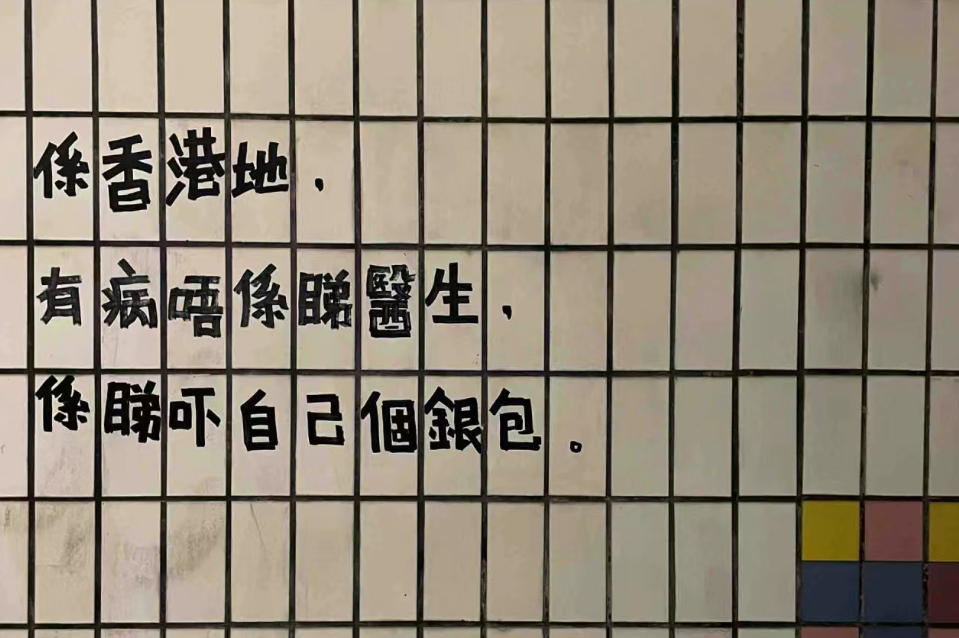 係香港地，
有病唔係睇醫生，
係睇吓自己個銀包。